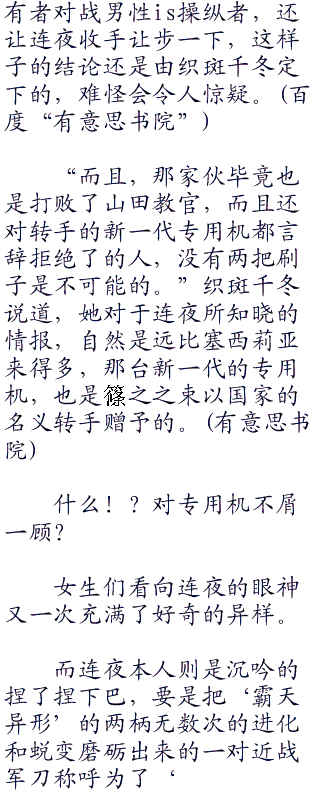 有者对战男性is操纵者，还
让连夜收手让步一下，这样
子的结论还是由织斑千冬定
下的，难怪会令人惊疑。(百
度“有意思书院”)
“而且，那家伙毕竟也
是打败了山田教官，而且还
对转手的新一代专用机都言
辞拒绝了的人，没有两把刷
子是不可能的。”织斑千冬
说道，她对于连夜所知晓的
情报，自然是远比塞西莉亚
来得多，那台新一代的专用
机，也是篠之之束以国家的
名义转手赠予的。(有意思书
院)
什么！？对专用机不屑
一顾？
女生们看向连夜的眼神
又一次充满了好奇的异样。
而连夜本人则是沉吟的
捏了捏下巴，要是把‘霸天
异形’的两柄无数次的进化
和蜕变磨砺出来的一对近战
军刀称呼为了‘